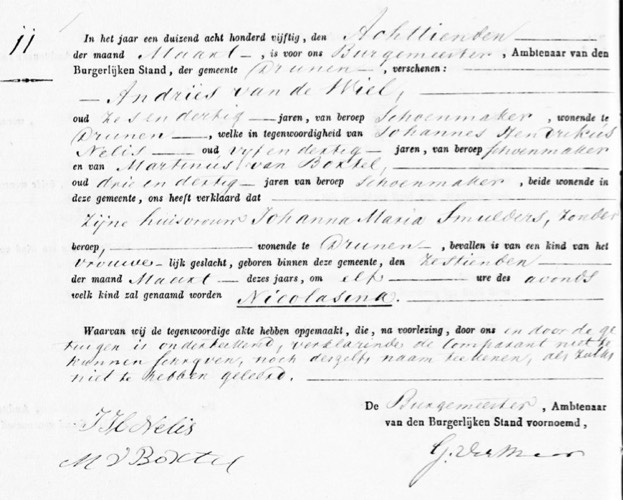 11
In het jaar een duizend acht honderd vijftig, den Achttienden
der maand Maart, is voor ons Burgemeester, Ambtenaar van den
Burgerlijken Stand, der gemeente Drunen, verschenen:
Andries van de Wiel,
oud Zes en dertig jaren, van beroep Schoenmaker, wonende te
Drunen, welke in tegenwoordigheid van Johannes Hendrikus
Nelis oud vyf en dertig jaren, van beroep schoenmaker
en van Martinus van Boxtel,
oud drie en dertig jaren van beroep Schoenmaker, beide wonende in
deze gemeente, ons heeft verklaard dat
Zijne huisvrouw Johanna Maria Smulders, Zonder
beroep, wonende te Drunen, bevallen is van een kind van het
vrouwe-lijk geslacht, geboren binnen deze gemeente, den Zestienden
der maand Maart dezes jaars, om elf ure des avonds
welk kind zal genaamd worden Nicolasina.
Waarvan wij de tegenwoordige akte hebben opgemaakt, die, na voorlezing, door ons en door de ge
tuigen is onderteekend, verklarende de Comparant niet te
kunnen schryven, noch deszelfs naam teekenen, als zulks
niet te hebben geleerd.
De Burgemeester, Ambtenaar
van den Burgerlijken Stand voornoemd,
J H Nelis
M V Boxtel